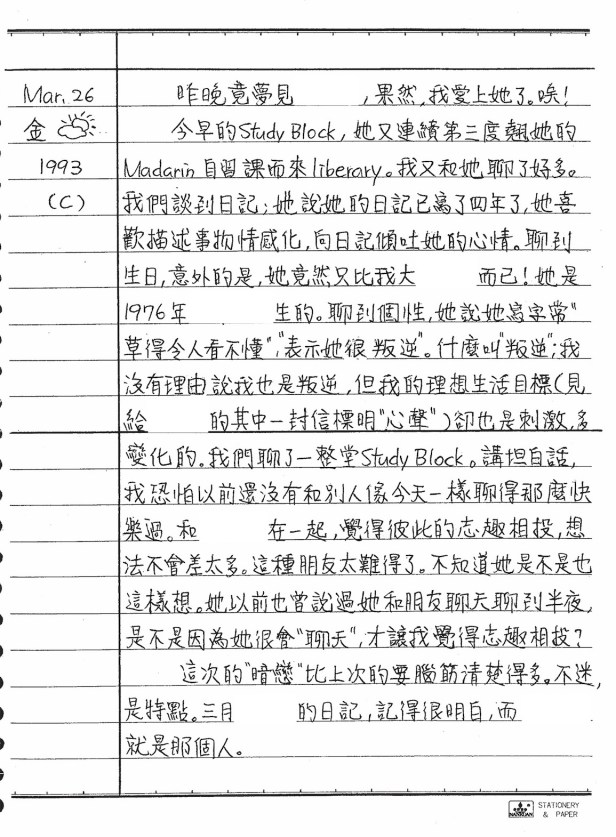 Mar. 26 昨晚竟夢見 ,果然,我愛上她了。唉!
金 今早的Study Block,她又連續第三度翹她的
1993 Madarin 自習課而來 liberary。我又和她聊了好多。
(C) 我們談到日記;她說她的日記已寫了四年了,她喜
歡描述事物情感化,向日記傾吐她的心情。聊到
生日,意外的是,她竟然又比我大 而已!她是
1976年 生的。聊到個性,她說她寫字常"
草得令人看不懂","表示她很叛逆"。什麼叫"叛逆";我
沒有理由說我也是叛逆,但我的理想生活目標(見
給 的其中一封信標明"心聲")卻也是刺激,多
變化的。我們聊了一整堂Study Block。講坦白話,
我恐怕以前還沒有和別人像今天一樣聊得那麼快
樂過。和 在一起,覺得彼此的志趣相投,想
法不會差太多。這種朋友太難得了。不知道她是不是也
這樣想。她以前也曾說過她和朋友聊天聊到半夜,
是不是因為她很會"聊天",才讓我覺得志趣相投?
這次的"暗戀"比上次的要腦筋清楚得多。不迷,
是特點。三月 的日記,記得很明白,而
就是那個人。
NANKUAN STATIONERY
& PAPER